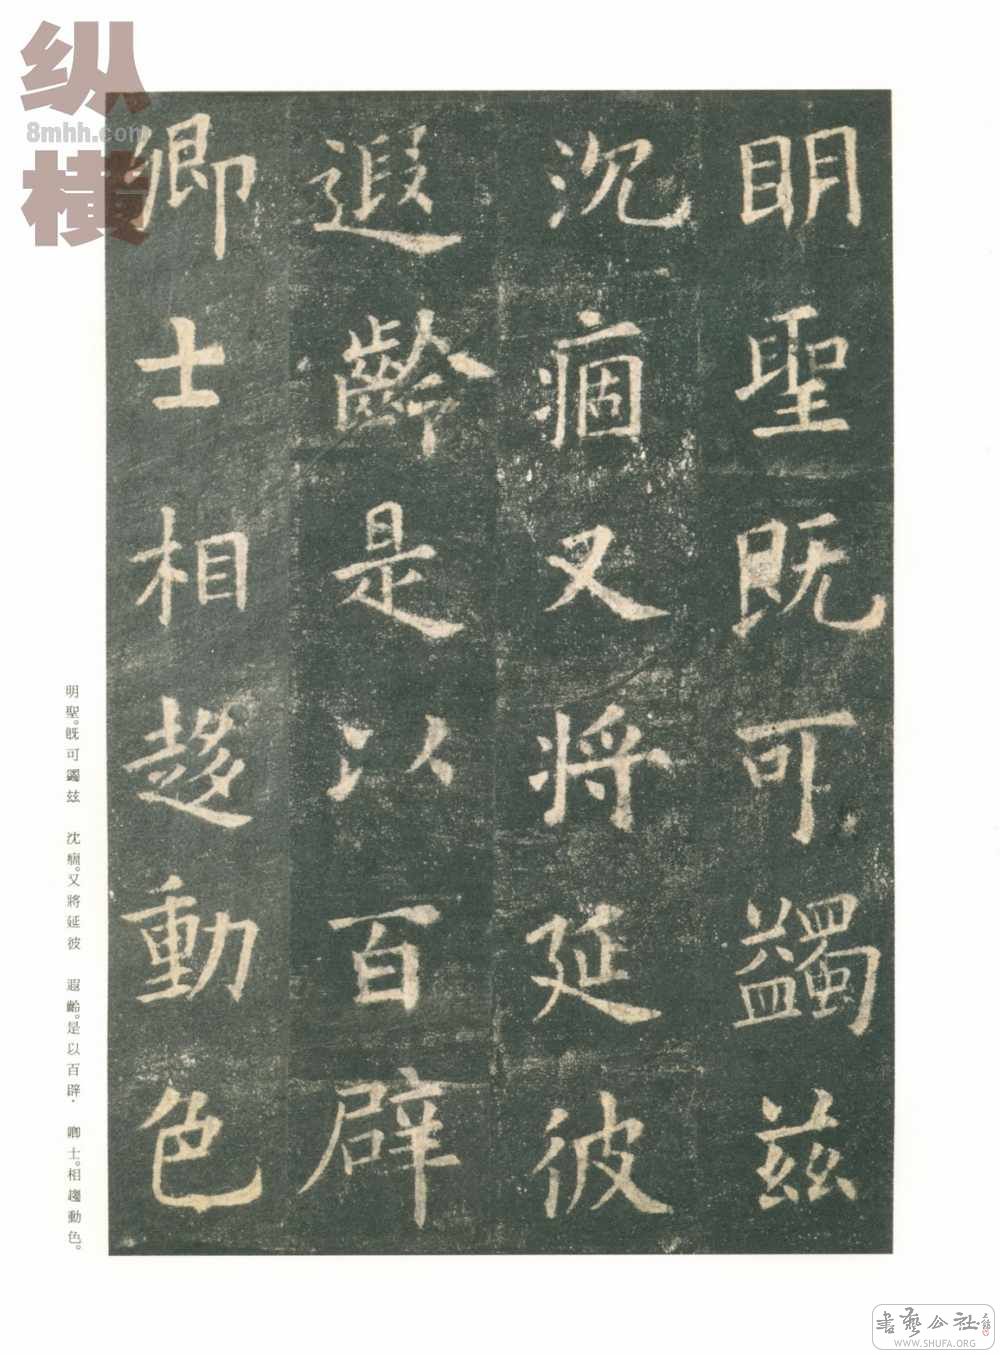 明聖既可蠲兹
沉痼又將延彼
遐齡是以百辟
卿士相趍動色
明聖。既可蠲兹　沈痼。又將延彼　遐齡。是以百辟．　卿士。相趨動色。
纵横
8mhh.com
書藝公社
WWW.SHUFA.ORG